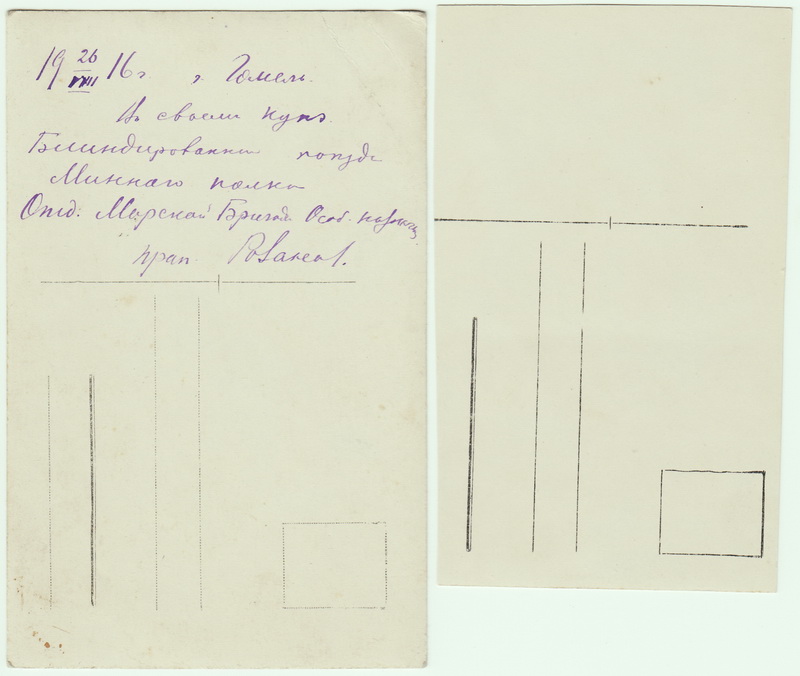 19 26/VIII 16 г. г. Гомель.
Въ своем купэ.
Блиндированный поезд
Миннаго полка
Отд: Морской Бригад. Особ. назнач.
прап.